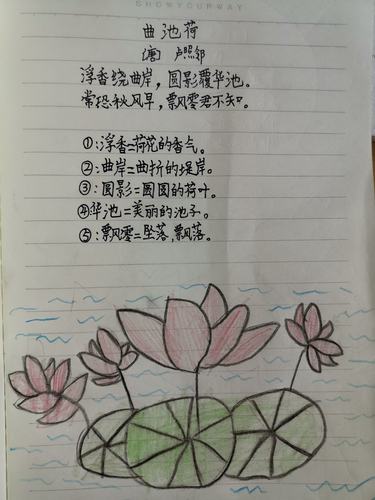 SHOWYOURWAY
曲池荷
(唐) 卢照邻
浮香绕曲岸，圆影覆华池。
常恐秋风早，飘零君不知。
①:浮香=荷花的香气。
②:曲岸=曲折的堤岸。
③:圆影=圆圆的荷叶。
④华池=美丽的池子。
⑤:飘零=坠落,飘落。